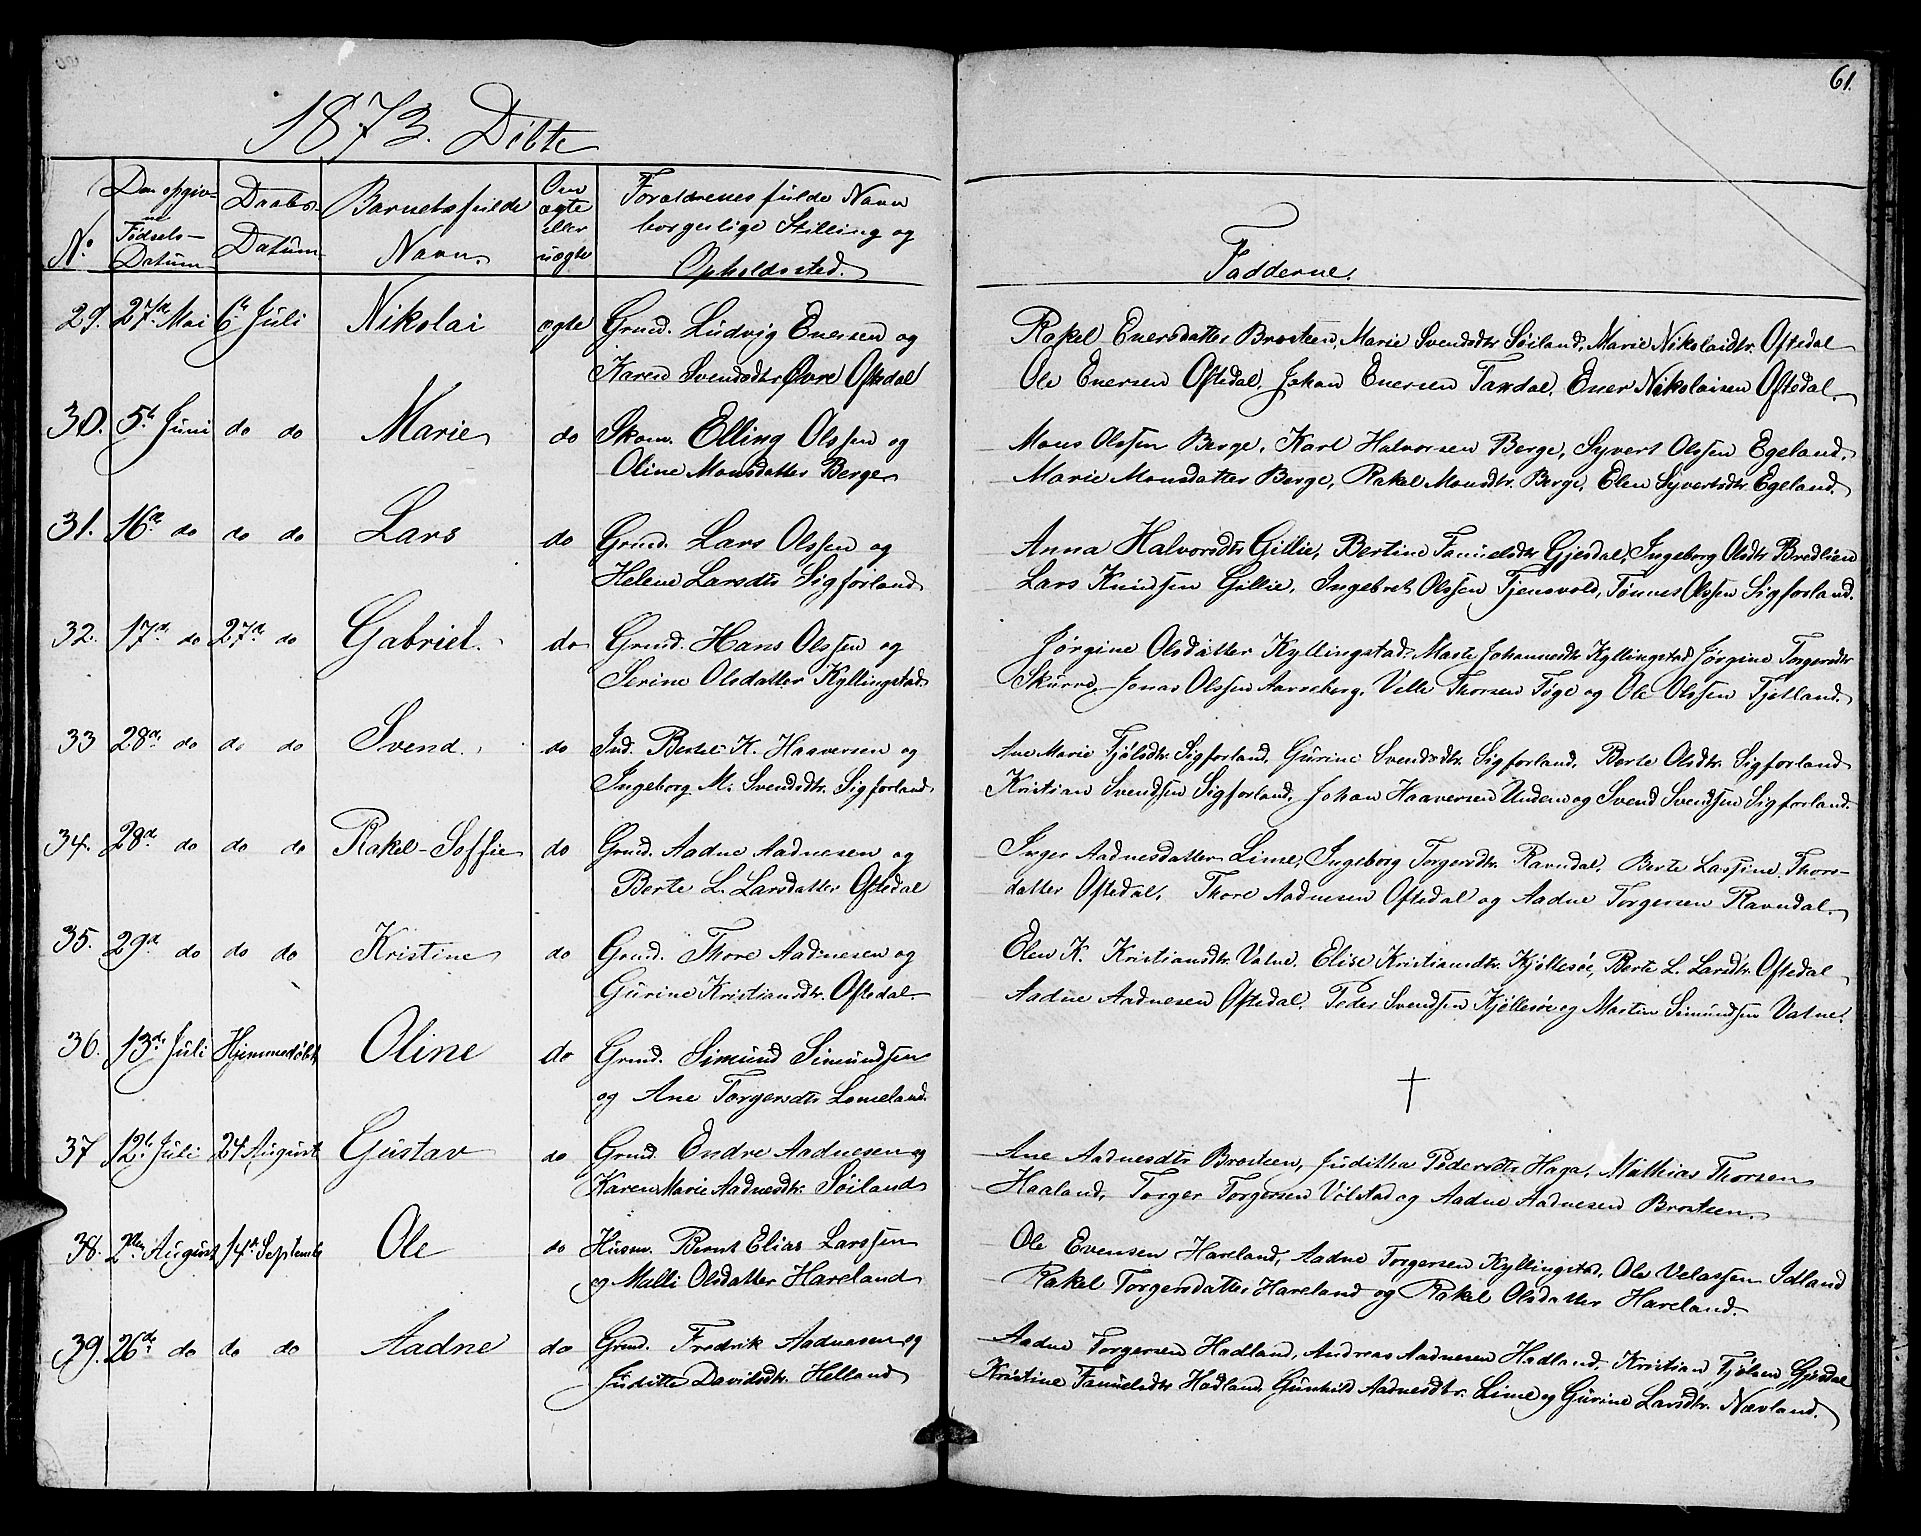 61.
1873. Döbte
No
Den opgiv-
ne
Födsels-
Datum
Daabs-
Datum
Barnets fulde
Navn.
Om
ægte
eller
uægte
Forældrenes fulde Navn
borgerlige Stilling og
Opholdssted.
Fadderne.
29. 27de Mai 6te Juli Nikolai ægte Grmd. Ludvig Enersen og
Karen Svendsdtr. Øvre Oftedal
Rakel Enersdatter Brosteen, Marie Svendsdtr Söiland, Marie Nikolaidtr. Oftedal
Ole Enersen Oftedal, Johan Enersen Tandal, Ener Nikolaisen Oftedal.
30. 5te Juni do do Marie do Skom. Elling Olssen og
Oline Monsdatter Berge
Mons Olssen Berge, Karl Halvorsen Berge, Syvert Olssen Egeland,
Marie Monsdatter Berge, Rakel Monsdtr. Berge, Elen Syvertsdtr. Egeland.
31. 16de do do do Lars do Grmd. Lars Olssen og
Helene Larsdtr Sigforland
Anna Halvorsdtr Gillie, Bertine Tanuelsdtr Gjesdal, Ingeborg Olsdtr Bredlien
Lars Knudsen Gillie, Ingebret Olssen Tjensvold, Tönnes Olssen Sigforland.
32. 17de do 27de do Gabriel. do Grmd. Hans Olssen og
Serine Olsdatter Kyllingstad
Jörgine Olsdatter Kyllingstad, Marte Johannesdtr Kyllingstad, Jörgine Torgersdtr
Skurve, Jonas Olssen Aarreberg, Velle Thorsen Töge og Ole Olssen Fjelland.
33 28de do do do Svend. do Ind. Bertel K. Haaversen og
Ingeborg M. Svendsdtr. Sigforland
Ane Marie Fjölsdtr. Sigforland, Gurine Svendsdtr. Sigforland, Berte Olsdtr. Sigforland
Kristian Svendsen Sigforland, Johan Haaversen Undem og Svend Svendsen Sigforland.
34. 28de do do do Rakel-Soffie do Grmd. Aadne Aadnesen og
Berte L. Larsdatter Oftedal
Inger Aadnesdatter Lime, Ingeborg Torgersdtr. Ravndal, Berte Lassine Thors-
datter Oftedal, Thore Aadnesen Oftedal og Aadne Torgersen Ravndal.
35. 29de do do do Kristine do Grmd. Thore Aadnesen og
Gurine Kristiansdtr. Oftedal.
Elen K. Kristiansdtr. Vatne, Elise Kristiansdtr. Kjöllesöe, Berte L. Larsdtr. Oftedal
Aadne Aadnesen Oftedal, Peder Svendsen Kjöllesöe og Martin Simundsen Vatne.
36. 13de Juli Hjemmedöbt Oline do Grmd. Simund Simundsen
og Ane Torgersdtr Lomeland.
37 12te Juli 24 August Gustav do Grmd. Endre Aadnesen og
Karen Marie Aadnesdtr. Söiland
Ane Aadnesdtr Brosteen, Juditha Pedersdtr Haga, Mathias Thorsen
Haaland, Torger Torgersen Völstad og Aadne Aadnesen Brosteen.
38. 2den August 14de Septemb Ole do Husm. Bernt Elias Larssen
og Malli Olsdatter Hareland
Ole Evensen Hareland, Aadne Torgersen Kyllingstad, Ole Velassen Idland
Rakel Torgersdatter Hareland og Rakel Olsdatter Hareland.
39. 26de do do do Aadne do Grmd. Fredrik Aadnesen og
Juditte Davidsdtr. Helland
Aadne Torgersen Hadland, Andreas Aadnesen Hadland, Kristian Fjölsen Gjesdal
Kristine Tanuelsdtr Hadland, Gunhild Aadnesdtr. Lime og Gurine Larsdtr. Nævland.